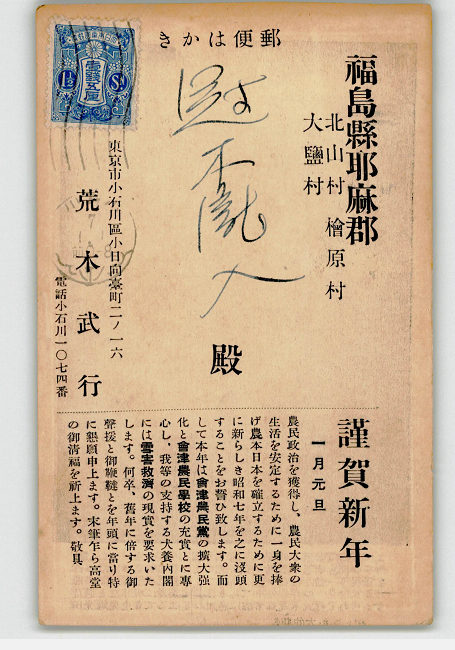 郵便はかき
壹錢五厘
1½ Sn.
福島縣耶麻郡
北山村 檜原村
大鹽村
殿
東京市小石川區小日向臺町二ノ一六
荒木武行
電話小石川一〇七四番
謹賀新年
一月元旦
農民政治を獲得し、農民大衆の
生活を安定するために一身を捧
げ農本日本を確立するために更
に新らしき昭和七年を之に沒頭
することをお誓ひ致します。而
して本年は會津農民黨の擴大强
化と會津農民學校の充實とに專
心し、我等の支持する犬養內閣
には雪害救濟の現實を要求いた
します。何卒、舊年に倍する御
聲援と御鞭撻とを年頭に當り特
に懇願申上ます。末筆乍ら高堂
の御淸福を祈上ます。敬具